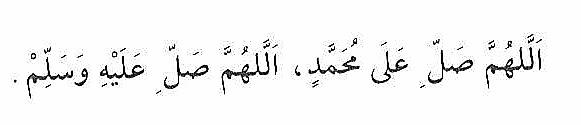 اَللهُمَّ صَلِّ عَلَى مُحَمَّدٍ، اَللهُمَّ صَلِّ عَلَيْهِ وَسَلِّمْ.